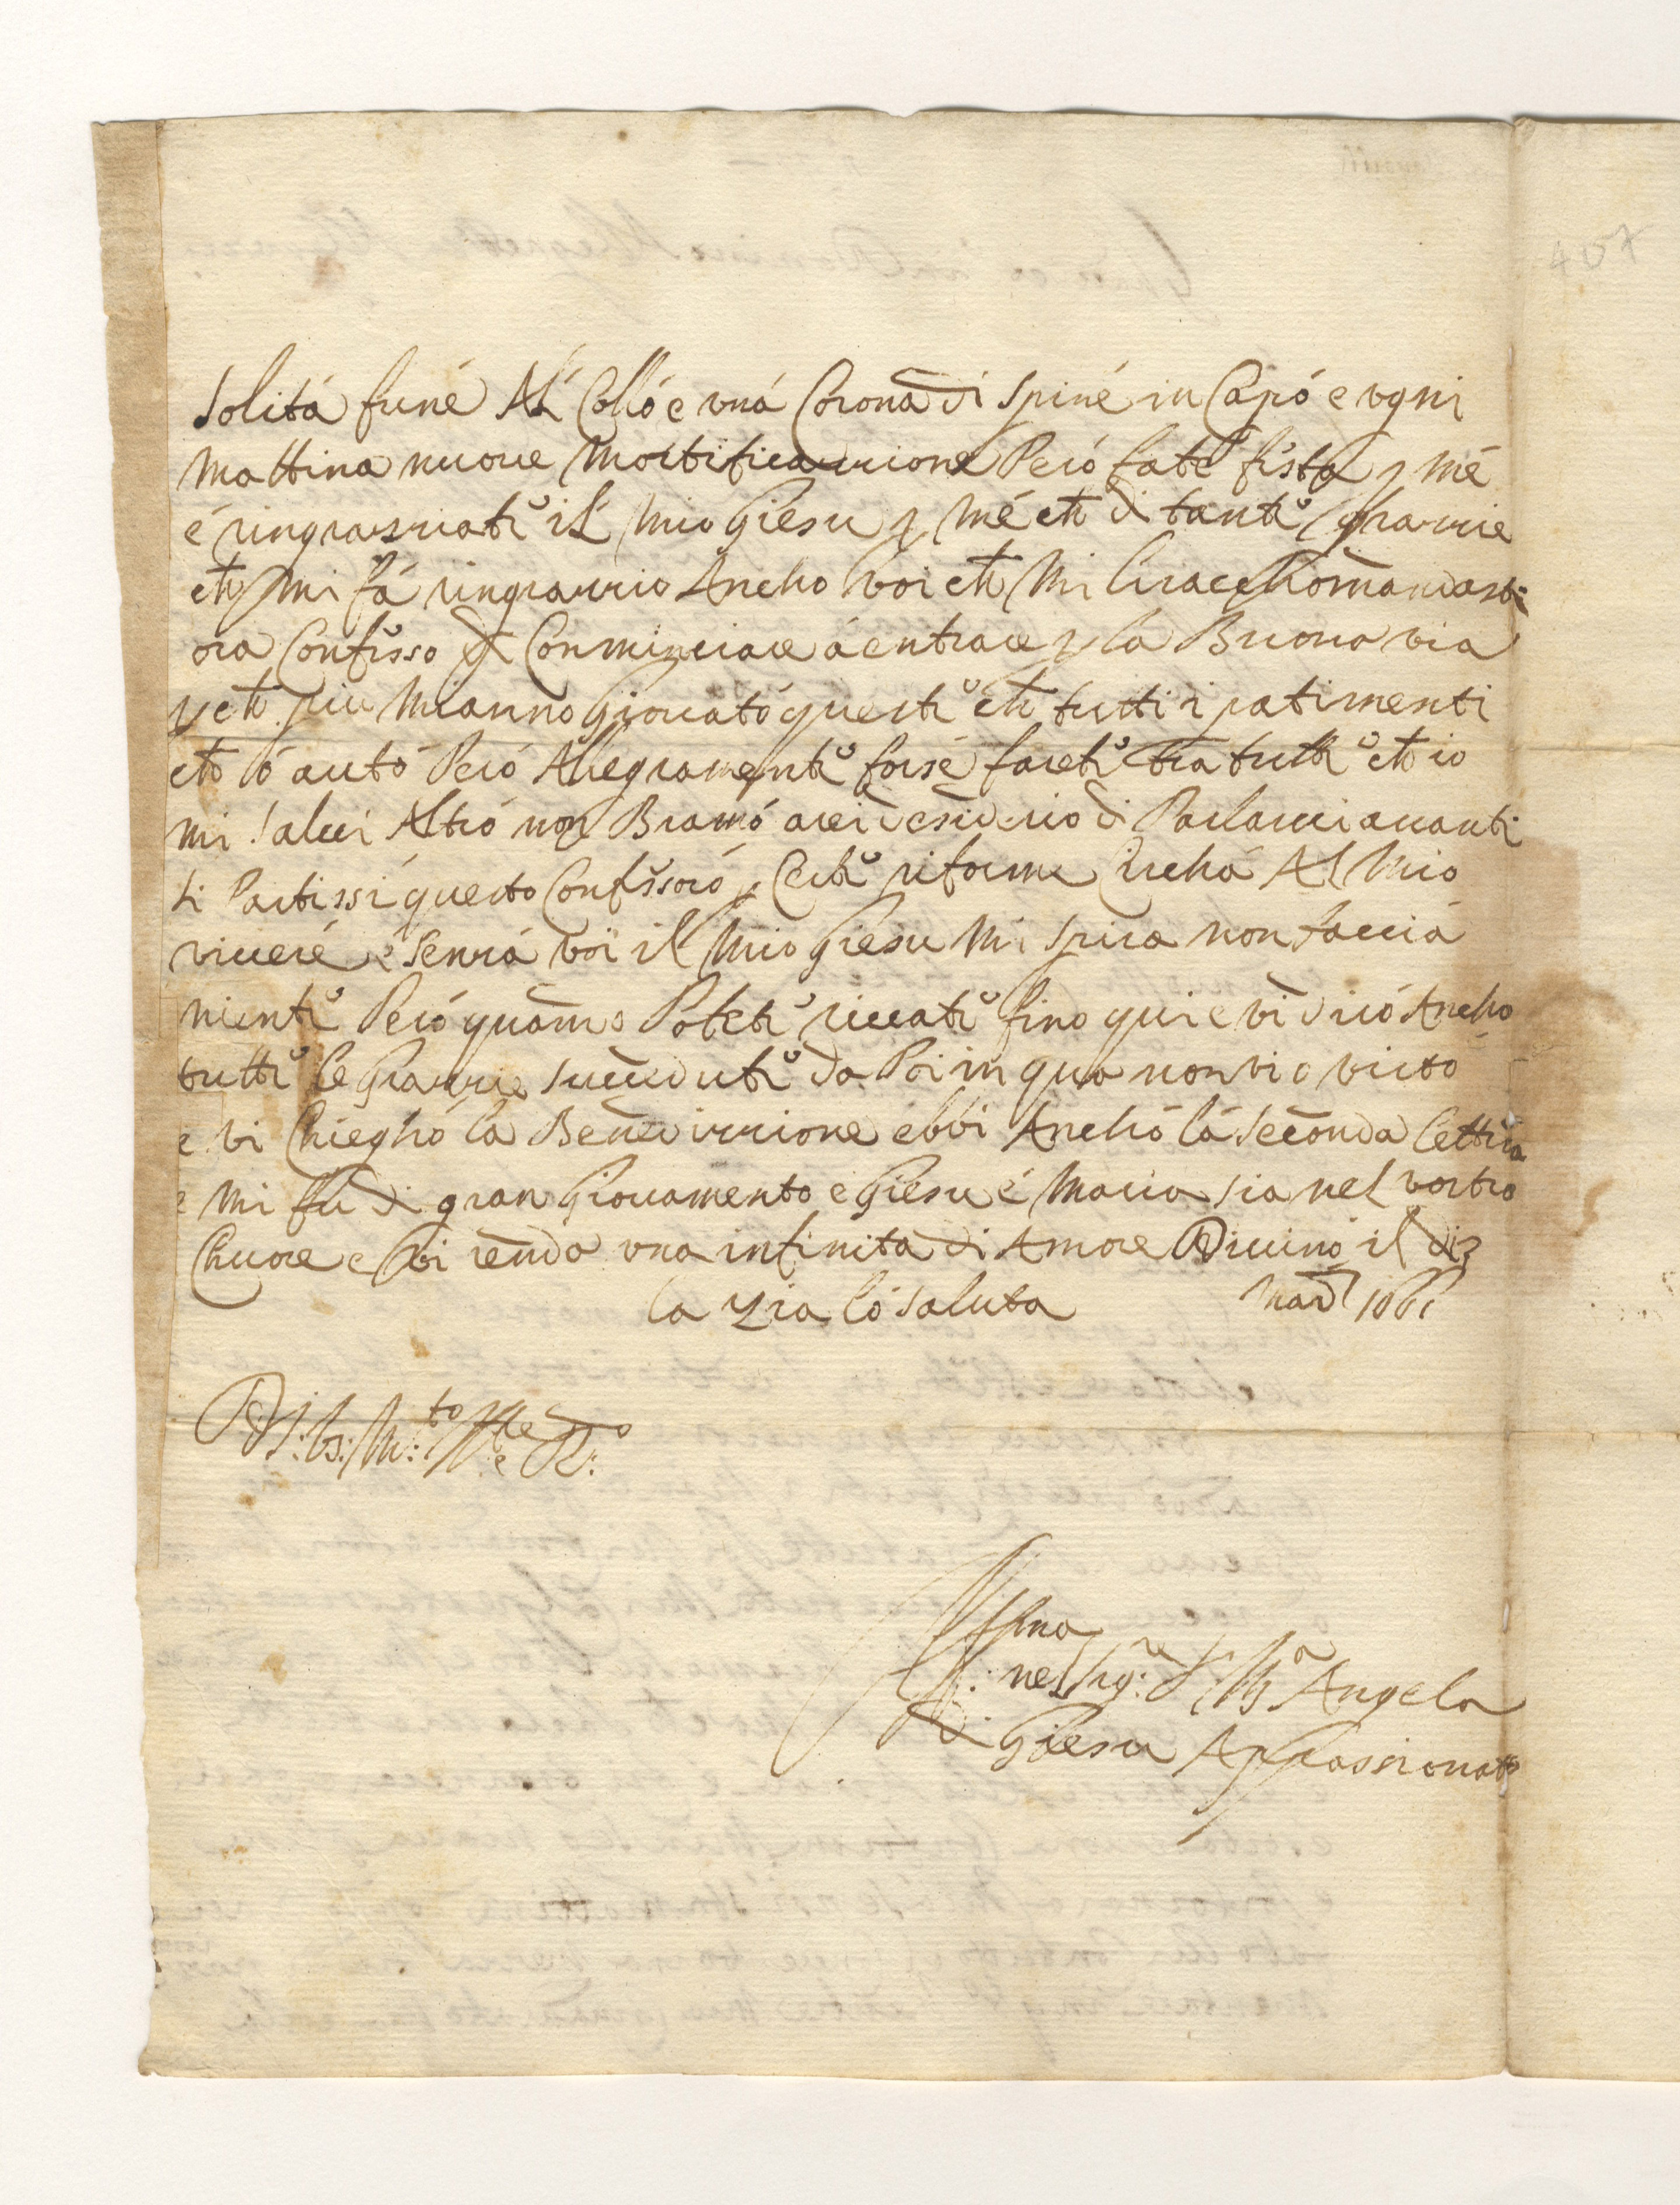 solitá funé AL Colló e vná Coroná di spiné in Capó e vgni
Mattina nuove Mortificazzione Peró fate festa p mé
é ringrazziate iL mio Giesu p mé che di tante Ghrazzie
che mi fá ringrazzio Ancho voi che mi
ora Confesso di Conminciare á entrare p la Buona via
p che piu mi anno Giovató queste che tutti i patimenti
che ó auto Peró Allegramente forsé farete tra tutte che io
mi salvi Altró non Bramó arei desiderio di Parlarvi avanti
si Partissi questo Confessoró p Certe riforme Circhá Al Mio
viveré e senzá voi il Mio Giesu Mi spira non faccia
niente Peró quando Potete fino qui e vi diró Ancho
tutte le Grazzie succedute da Poi in qua non vi o visto
e vi Chiegho la Benedizzione ebbi Anchó lá seconda lettera
e mi fu di gran Giovamento e Giesu é Maria sia nel vostro
Chuore e vi rendo vna infinita di Amore Divino il di 3
la zia ló saluta
D: V: S: M:to
nel Sig:re S: Ma Angela
di Giesu Appassionato
407